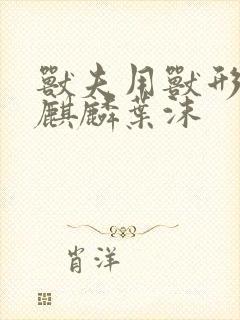 獸夫用獸形
麒麟葉沫
肖洋